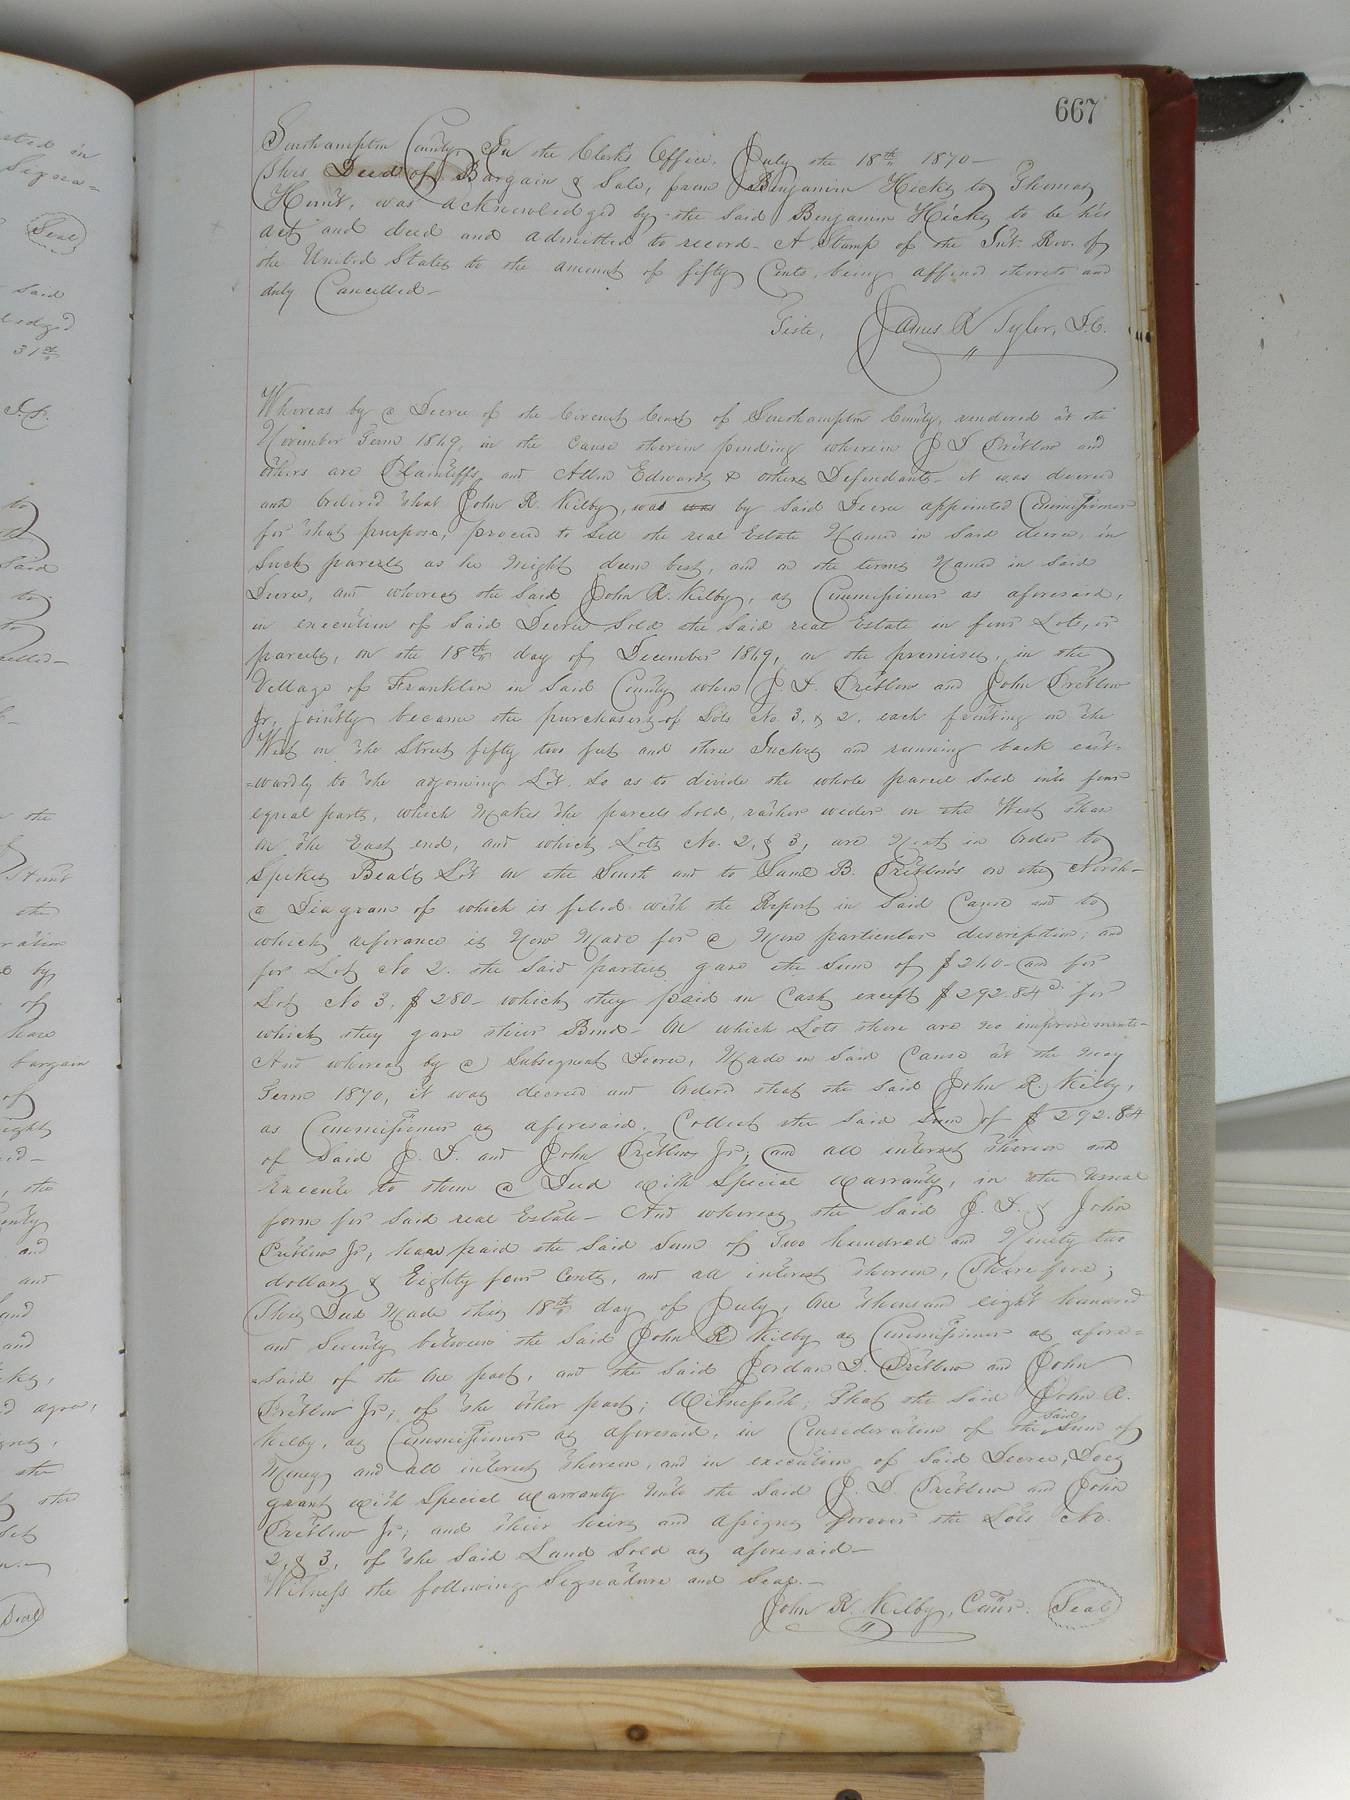 667
Southampton County, In the Clerk's Office, July the 18th 1870—
This Deed of Bargain & Sale, from Benjamin Hicks to Thomas
Hunt, was acknowledged by the said Benjamin Hicks to be his
act and deed and admitted to record— A Stamp of the Int. Rev. of
the United States to the amount of fifty Cents, being affixed thereto and
duly Cancelled—
Teste, James R Tyler, D.C.
Whereas by a Decree of the Circuit Court of Southampton County, rendered at the
November Term 1869, in the Cause therein pending wherein J D Pretlow and
others are Plaintiffs, and Allen Edwards & others Defendants— it was decreed
and Ordered that John R. Kilby, was by said Decree appointed Commissioner
for that purpose, proceed to Sell the real Estate Named in said decree, in
Such parcels as he might deem best, and on the terms Named in said
Decree, and whereas the said John R. Kilby, as Commissioner as aforesaid,
in execution of said Decree Sold the said real Estate in four Lots, or
parcels, on the 18th day of December 1869, on the premises, in the
Village of Franklin in said County when J. D. Pretlow and John Pretlow
Jr, jointly became the purchasers of Lots No. 3, & 2, each fronting on the
West on the Street fifty two feet and three Inches and running back east-
=wardly to the adjoining Lot. So as to divide the whole parcel sold into four
equal parts, which Makes the parcels Sold, rather wider on the West than
on the East end, and which Lots No. 2, & 3, are Next in Order to
Spikes Beal's Lot on the South and to Saml B. Pretlow's on the North—
a Diagram of which is filed with the Report in said Cause and to
which referance is Now Made for a More particular description; and
for Lot No 2. the said parties gave the Sum of $260— and for
Lot No 3, $280— which they paid in Cash except $292.84 cts for
which they gave their Bond— On which Lots there are no improvements—
And whereas by a Subsequent Decree, Made in said Cause at the May
Term 1870, it was decreed and Ordered that the said John R. Kilby,
as Commissioner as aforesaid, Collect the said Sum of $292.84
of said J. D. and John Pretlow Jr, and all interest thereon and
Execute to them a Deed with Special warranty, in the usual
form for said real Estate— And whereas the said J. D. & John
Pretlow Jr, have paid the said sum of Two hundred and Ninety two
dollars & Eighty four Cents, and all interest thereon, Therefore;
This Deed Made this 18th day of July, One thousand eight hundred
and Seventy between the said John R Kilby as Commissioner as afore=
=said of the One part, and the said Jordan D. Pretlow and John
Pretlow Jr, of the other part; Witnesseth; That the said John R.
Kilby, as Commissioner as aforesaid, in Consideration of the said Sum of
Money and all interest thereon, and in execution of said Decree, Does
grant with Special warranty Unto the said J. D. Pretlow and John
Pretlow Jr, and their heirs and assigns forever the Lots No.
2, & 3, of the said Land Sold as aforesaid—
Witness the following Signature and Seal.—
John R. Kilby, Comr. Seal